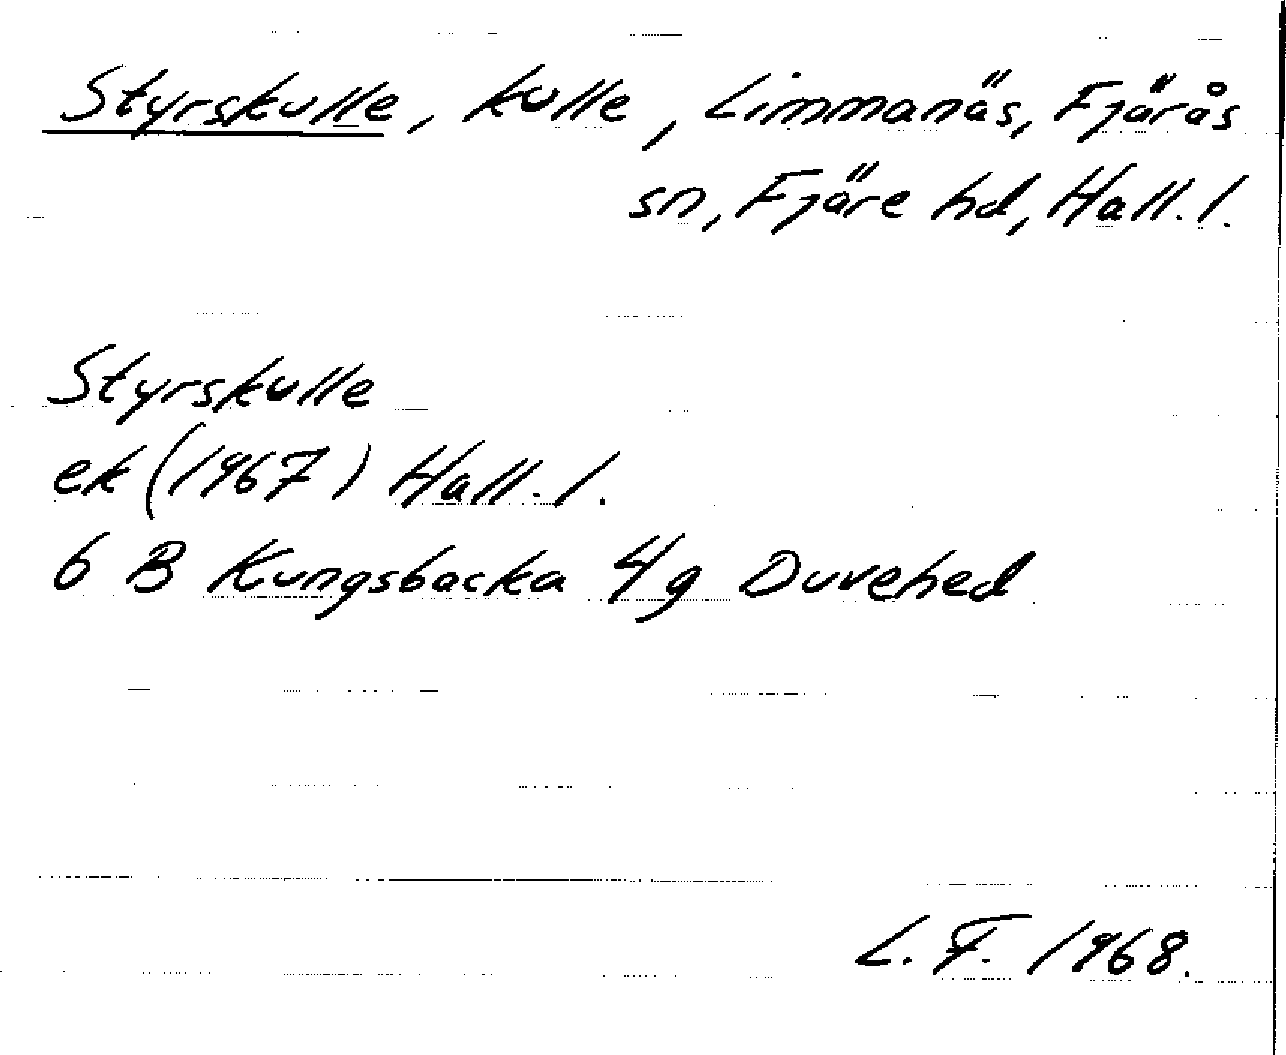 Styrskulle, kulle, Limmanäs, Fjärås
sn, Fjäre hd, Hall. l.
Styrskulle
ek (1967) Hall. l.
6 B Kungsbacka 4g Duvehed
L. F. 1968.